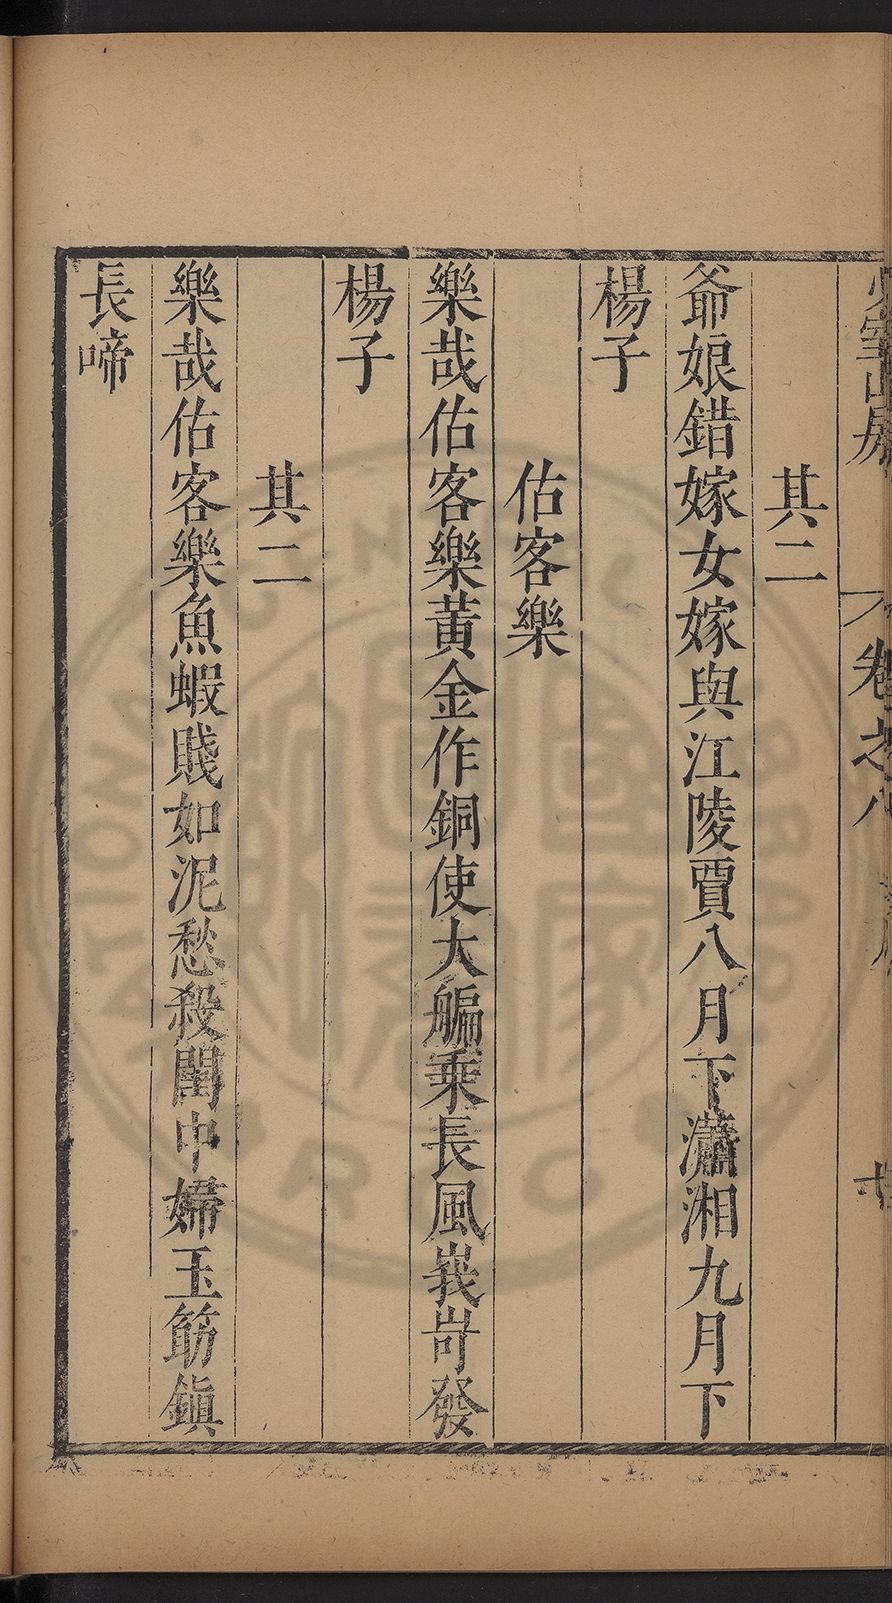 卷之八
其二
爺娘錯嫁女嫁與江陵賈八月下瀟湘九月下
楊子
估客樂
樂哉估客樂黃金作銅使大艑乘長風峩岢發
楊子
其二
樂哉估客樂魚蝦賤如泥愁殺閨中婦玉筯鎮
長啼